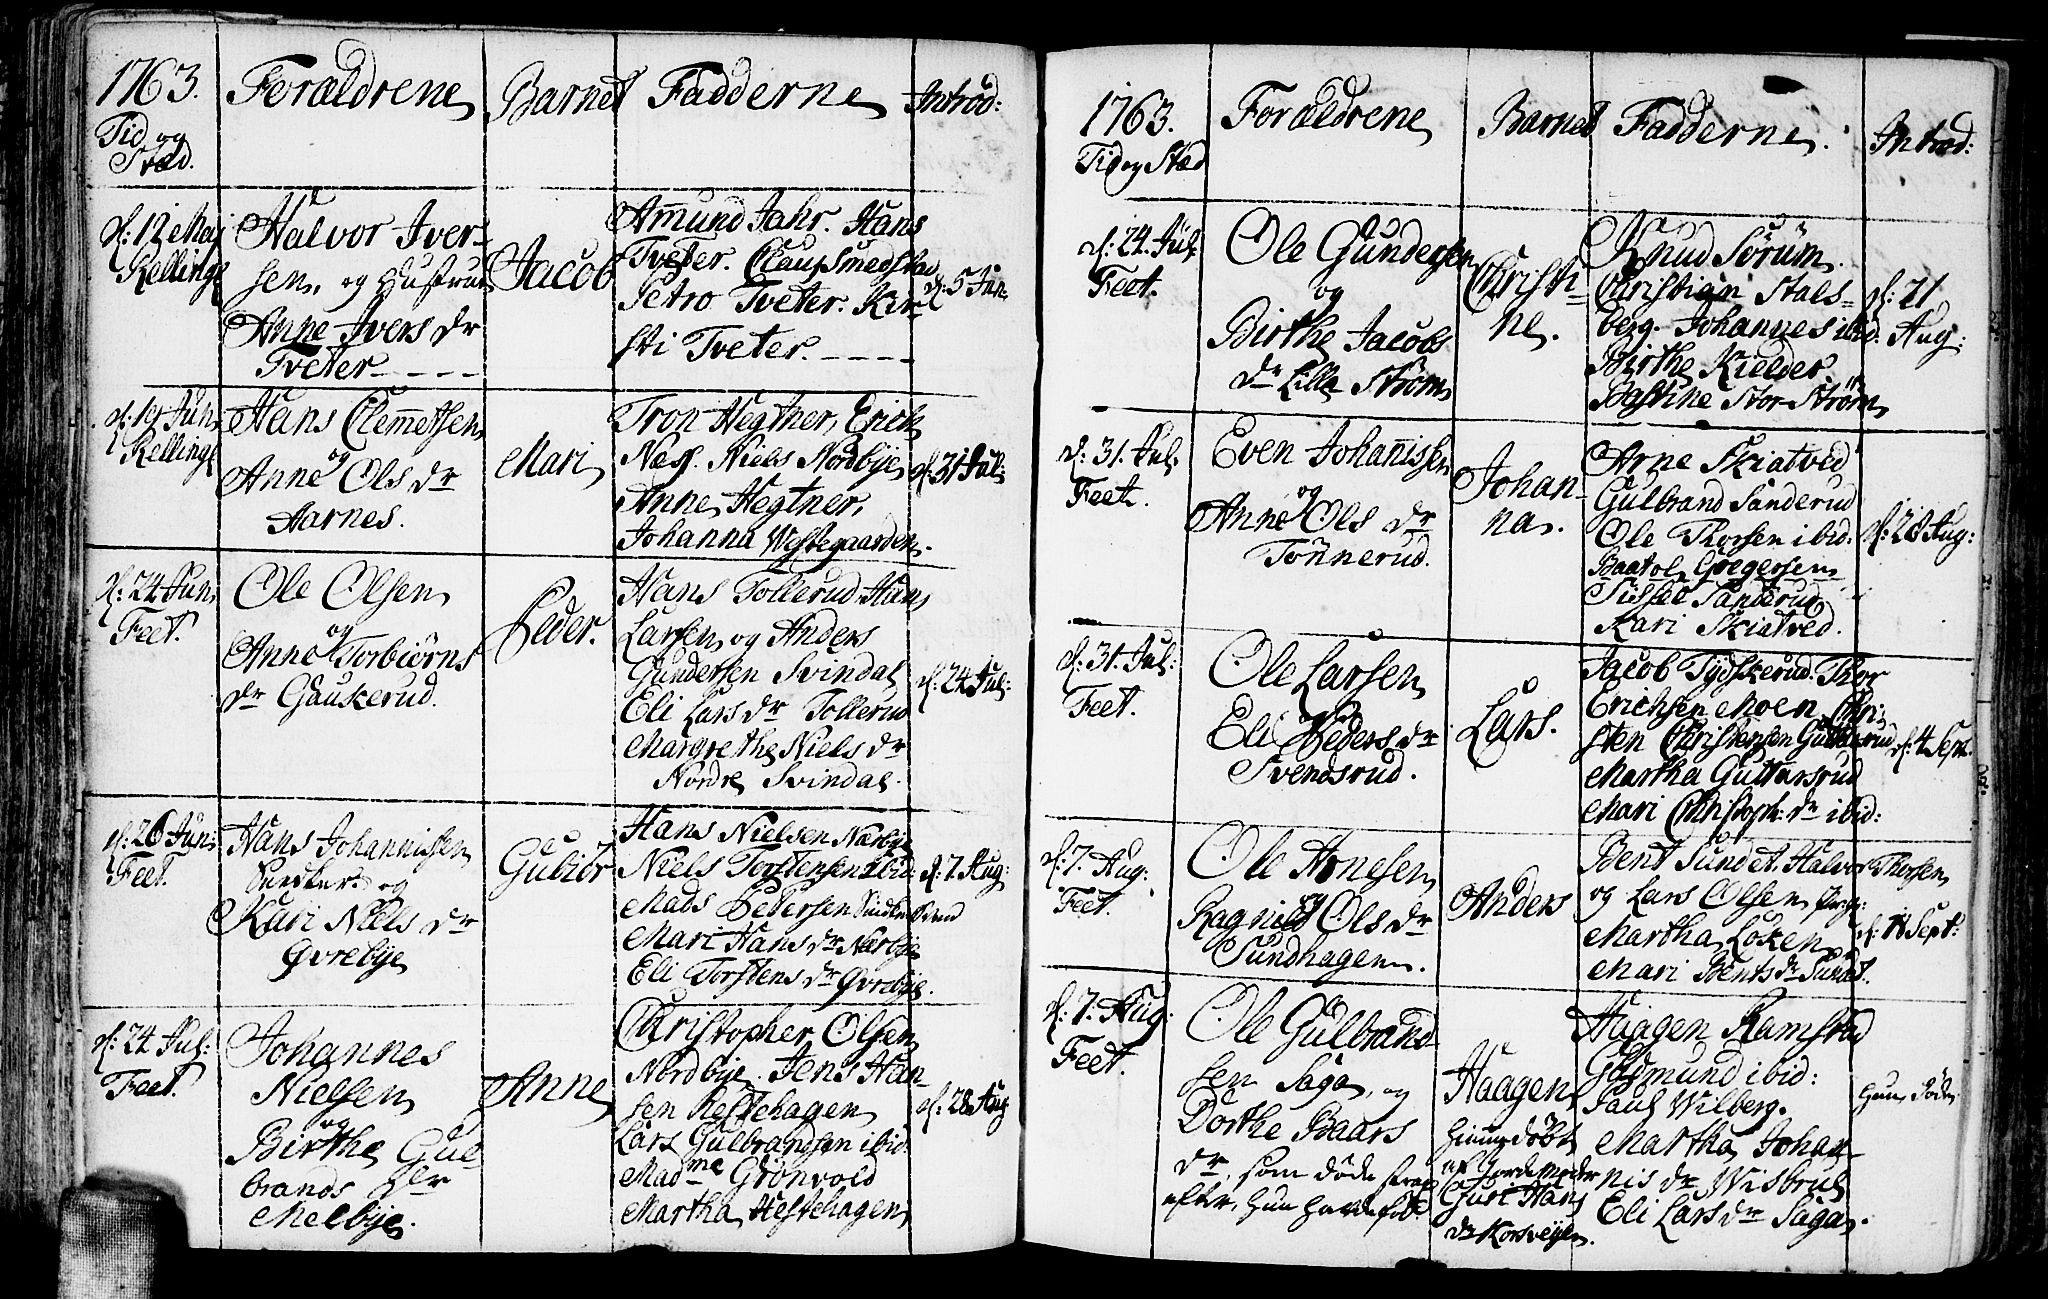 1763.
Tid og
Stæd.
Forældrene
Barnet
Fadderne
Introd:
d: 12 Maj
Kellinge
Halvor Iver-
sen, og Hustrue
Anne Ivers dr
Tveter
Jacob
Amund Jahr. Hans
Tveter. Claus Smedstad
Petro Tveter. Kir-
sti Tveter.
d: 5 Jun.
d: 19 Jun.
Kellinge
Hans Clemetsen
og
Anne Ols dr
Aarnes.
Mari
Tron Hegtner, Erich
Næss. Niels Nordbye,
Anne Hegtner,
Johanna Westegaarden.
d: 31 Jul:
d: 24 Jun.
Feet.
Ole Olsen
og
Anne Torbiørns
dr Gaukerud.
Peder.
Hans Tollerud. Hans
Larsen og Anders
Gundersen Svindal,
Eli Lars dr Tollerud
Margrethe Niels dr
Nordre Svindal.
d: 24 Jul:
d: 26 Jun.
Feet.
Hans Johannissen
og
Kari Niels dr
Øvrebye
Gubiør
Hans Nielsen Nærbye
Niels Torstensen ibid:
Mads Pedersen
Mari Hans dr Nærbye
Eli Torstens dr Øvrebye.
d: 7 Aug:
d: 24 Jul:
Feet.
Johannes
Nielsen
og
Birthe Gul-
brands dr
Melbye.
Anne
Christopher Olsen
Nordbye. Jens Han-
sen Hestehagen
Lars Gulbrandsen ibid:
Madme Grønvold
Martha Hestehagen
d: 28 Aug
1763.
Tid og Stæd
Forældrene
Barnet
Fadderne.
Introd:
d: 24 Jul.
Feet.
Ole Gundersen
og
Birthe Jacobs
dr Lille Strøm
Christi-
ne.
Knud Sørum.
Christian Stals-
berg. Johannes ibid.
Birthe Kielder.
Bastine Stor-Strøm
d: 21
Aug:
d: 31. Jul.
Feet.
Even Johanissen
og
Anne Ols dr
Tønnerud.
Johan-
na.
Arne Skiatved
Gulbrand Sanderud
Ole Thorsen ibid.
Baatol Gregersen
Sissel Sanderud
Kari Skiatved.
d: 28 Aug:
d: 31. Jul:
Feet.
Ole Larsen
og
Eli Peders dr
Svendsrud.
Lars.
Jacob Tydskerud. Thor
Erichsen Moen. Chri-
sten Christensen Guttersrud
Martha Guttersrud
Mari Christoph: dr ibid:
d: 4 Sept.
d: 7. Aug:
Feet.
Ole Arnesen
og
Ragnild Ols dr
Sundhagen.
Anders
Bent Sundet. Halvor Thorsen
og Lars Olsen
Martha Løken
Mari Bents dr Sundet.
d: 18 Sept:
d: 7. Aug:
Feet.
Ole Gulbrand-
sen Saga, og
Dorthe Baars
dr, som døde strax
efter, hun hafde fød.
Haagen
hiemdøbt
af Jordemoder
Guri Hans
dr Korsveyen.
Haagen Ramstad
Gudmund ibid:
Paul Wilberg.
Martha Johan-
nis dr Wisbrud
Eli Lars dr Saga.
hun døde